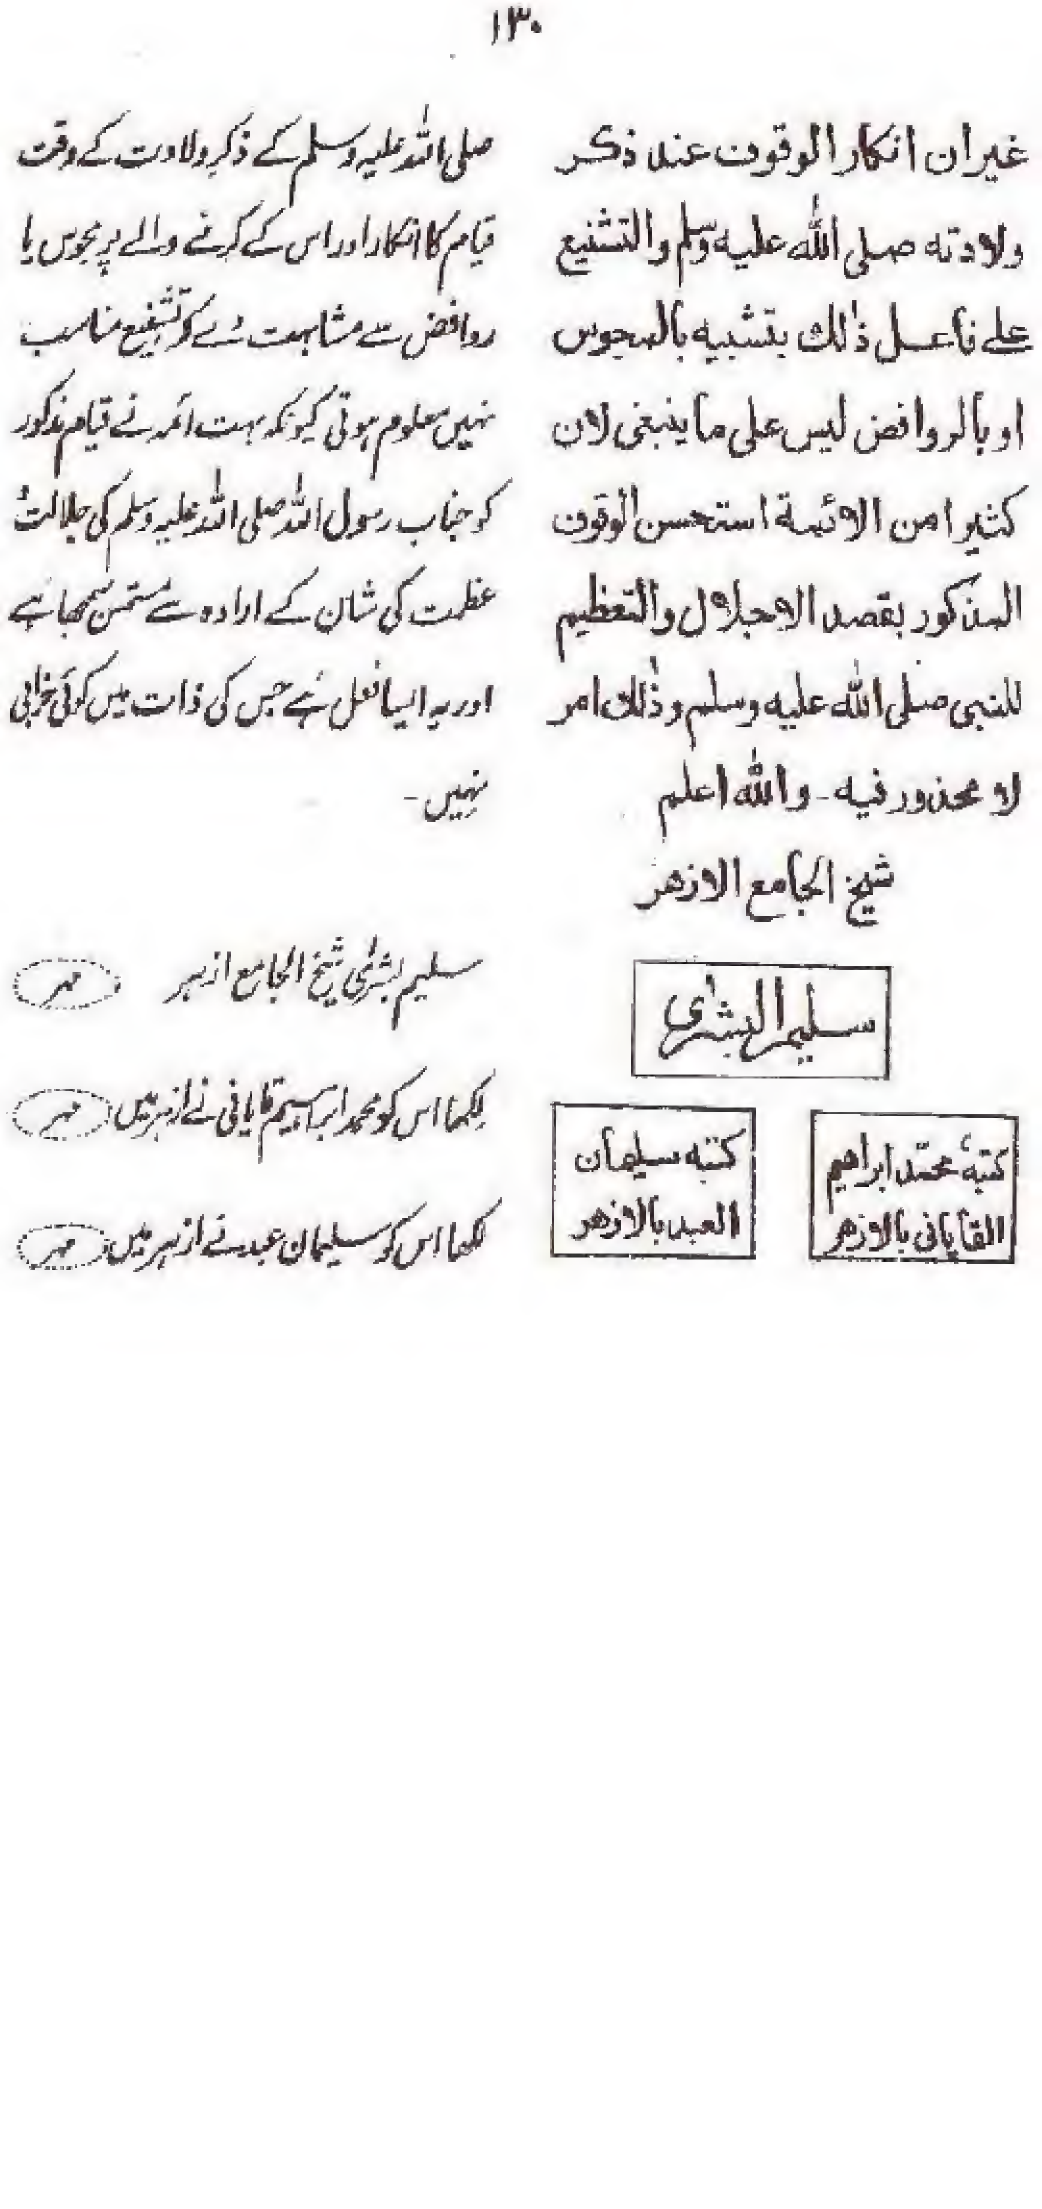 ١٣٠
غیران انکار الوقوف عند ذکر
ولادته صلی الله علیه وسلم والتشنیع
علے فاعل ذٰلک بتشبیه بالمجوس
او بالروافض لیس علی ما ینبغی لان
کثیرا من الائمة استحسن الوقوف
المذکور بقصد الاجلال والتعظیم
للنبی صلی الله علیه وسلم وذٰلک امر
لا محذور فیه۔ والله اعلم
شیخ الجامع الازهر
سلیم البشرٰی
کتبهٗ محمد ابراهیم
القایانی بالازهر
کتبه سلیمان
العبد بالازهر
صلی اللہ علیہ وسلم کے ذکر ولادت کے وقت
قیام کا انکار اور اس کے کرنے والے پر مجوس یا
روافض سے مشابہت دے کر تشنیع مناسب
نہیں معلوم ہوتی کیونکہ بہت ائمہ نے قیام مذکور
کو جناب رسول اللہ صلی اللہ علیہ وسلم کی جلالت و
عظمت کی شان کے ارادہ سے مستحسن سمجھا ہے
اور یہ ایسا فعل ہے جس کی ذات میں کوئی خرابی
نہیں۔
سلیم بشرٰی شیخ الجامع ازہر مہر
لکھا اس کو محمد ابراہیم قایانی نے ازہر میں مہر
لکھا اس کو سلیمان عبد نے ازہر میں مہر